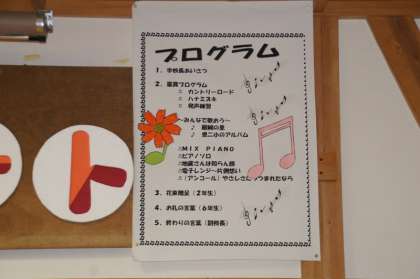 プログラム
1．学校長あいさつ
2．音楽プログラム
♫ カントリーロード
♫ ハナミズキ
♫ 発声練習
～みんなで歌おう～
♪ の里
♪ 里二小のアルバム
♫MIX PIANO
♫ピアノソロ
♫地蔵さんは知らん顔
♫電子レンジ～片側想い
♫(アンコール)やさしさにつつまれたなら
3．花束贈呈(2年生)
4．お礼の言葉(6年生)
5．終わりの言葉(副校長)
ト